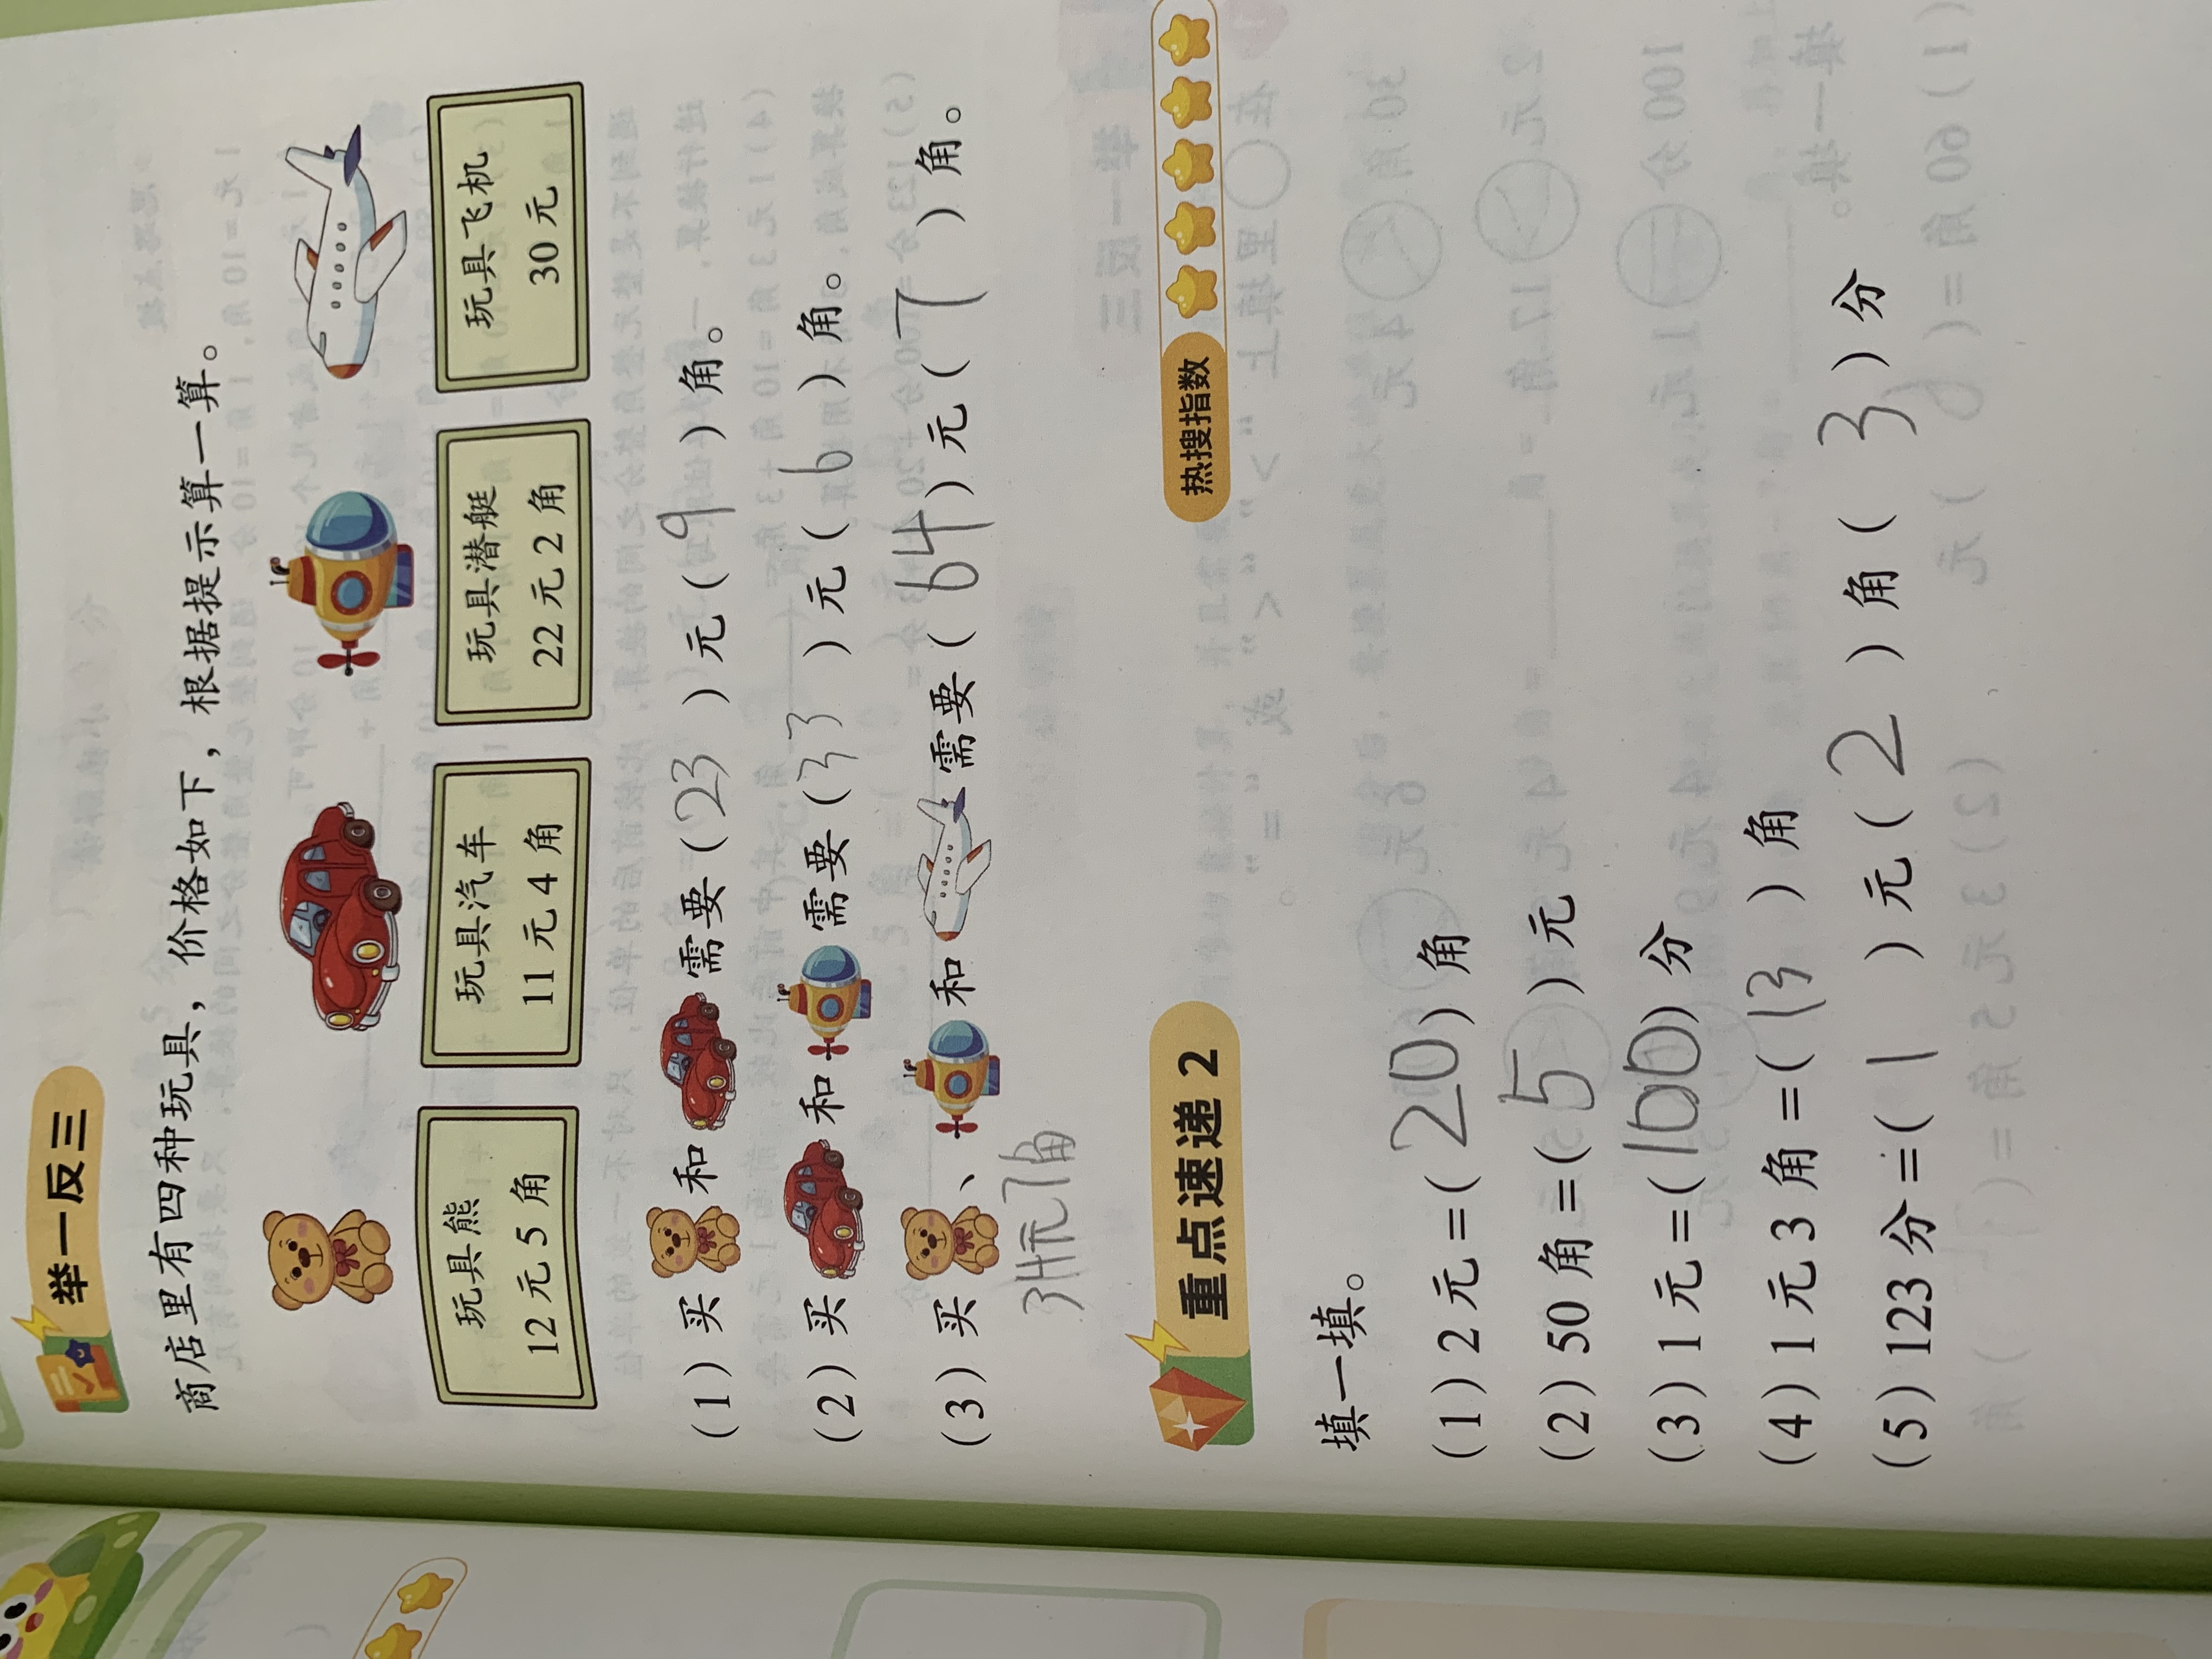 举一反三
商店里有四种玩具，价格如下，根据提示算一算。
玩具熊 玩具汽车 玩具潜艇 玩具飞机
12元5角 11元4角 22元2角 30元
(1)买 和 需要(23)元(9)角。
(2)买 和 需要(33)元(6)角。
(3)买 、 和 需要(64)元(7)角。
34元7角
重点速递2 热搜指数
填一填。
(1)2元=(20)角
(2)50角=(5)元
(3)1元=(100)分
(4)1元3角=(13)角
(5)123分=(1)元(2)角(3)分